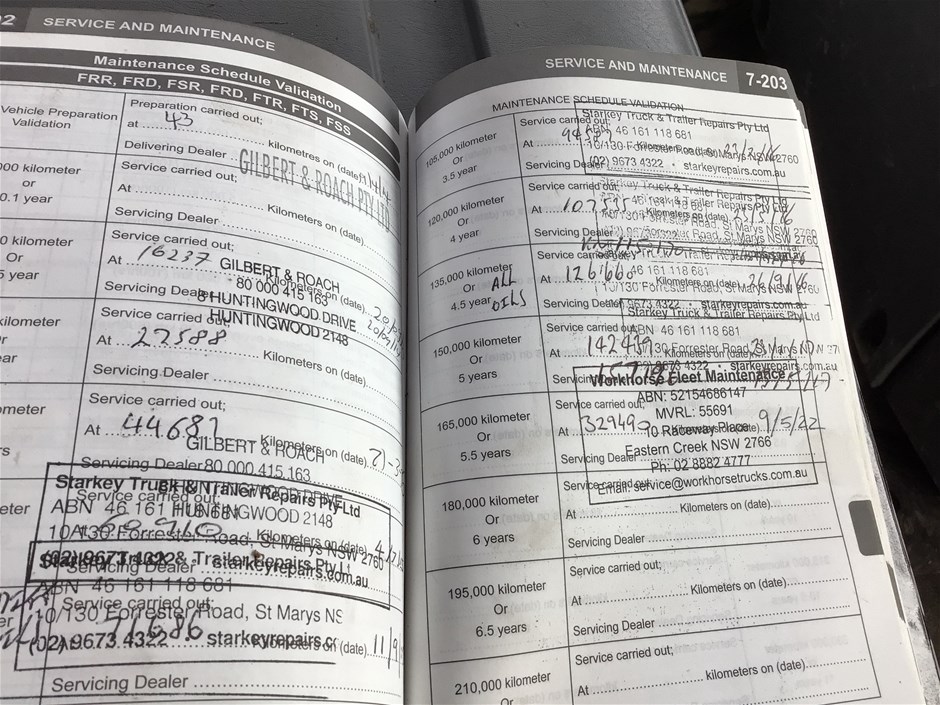 02 SERVICE AND MAINTENANCE
Maintenance Schedule Validation
FRR, FRD, FSR, FRD, FTR, FTS, FSS
Vehicle Preparation
Validation
Preparation carried out;
at 43 kilometres on (date)
Delivering Dealer
GILBERT & ROACH PTY LTD
000 kilometer
or
0.1 year
Service carried out;
At Kilometers on (date)
Servicing Dealer
0 kilometer
Or
5 year
Service carried out;
At 16237 Kilometers on (date)
GILBERT & ROACH
80 000 415 163
8 HUNTINGWOOD DRIVE
HUNTINGWOOD 2148
Servicing Dealer
kilometer
or
ear
Service carried out;
At 27588 Kilometers on (date)
Servicing Dealer
ometer
rs
Service carried out;
At 44687 Kilometers on (date)
GILBERT & ROACH
Servicing Dealer 80 000 415 163
HUNTINGWOOD DRIVE
HUNTINGWOOD 2148
Starkey Truck & Trailer Repairs Pty Ltd
Service carried out;
ABN 46 161 118 681
10/130 Forrester Road, St Marys NSW 2760
Kilometers on (date)
(02) 9673 4322 starkeyrepairs.com.au
Servicing Dealer
Starkey Truck & Trailer Repairs Pty L
ABN 46 161 118 681
Service carried out;
10/130 Forrester Road, St Marys NS
(02) 9673 4322 starkeyrepairs.co
Kilometers on (date) 11/9
Servicing Dealer
SERVICE AND MAINTENANCE 7-203
MAINTENANCE SCHEDULE VALIDATION
105,000 kilometer
Or
3.5 year
Service carried out;
Starkey Truck & Trailer Repairs Pty Ltd
ABN 46 161 118 681
10/130 Forrester Road, St Marys NSW 2760
Servicing Dealer (02) 9673 4322 • starkeyrepairs.com.au
120,000 kilometer
Or
4 year
Service carried out;
Starkey Truck & Trailer Repairs Pty Ltd
At Kilometers on (date)
10/130 Forrester Road, St Marys NSW 2760
Servicing Dealer
135,000 kilometer
Or
4.5 year
ALL
OILS
Service carried out;
At 126666 46 161 118 681
10/130 Forrester Road, St Marys NSW 2760
Servicing Dealer 9673 4322 • starkeyrepairs.com.au
Starkey Truck & Trailer Repairs Pty Ltd
150,000 kilometer
Or
5 years
Service carried out;
ABN 46 161 118 681
At 142439 130 Forrester Road, St Marys NSW
Kilometers on (date)
9673 4322 • starkeyrepairs.com.au
Servicing
Workhorse Fleet Maintenance
ABN: 52154686147
MVRL: 55691
165,000 kilometer
Or
5.5 years
Service carried out;
At 329490 10 Raceway Place (date) 9/5/22
Eastern Creek NSW 2766
Servicing Dealer
Ph: 02 8882 4777
Email: service@workhorsetrucks.com.au
180,000 kilometer
Or
6 years
Service carried out;
At Kilometers on (date)
Servicing Dealer
195,000 kilometer
Or
6.5 years
Service carried out;
At Kilometers on (date)
Servicing Dealer
210,000 kilometer
Service carried out;
At Kilometers on (date)